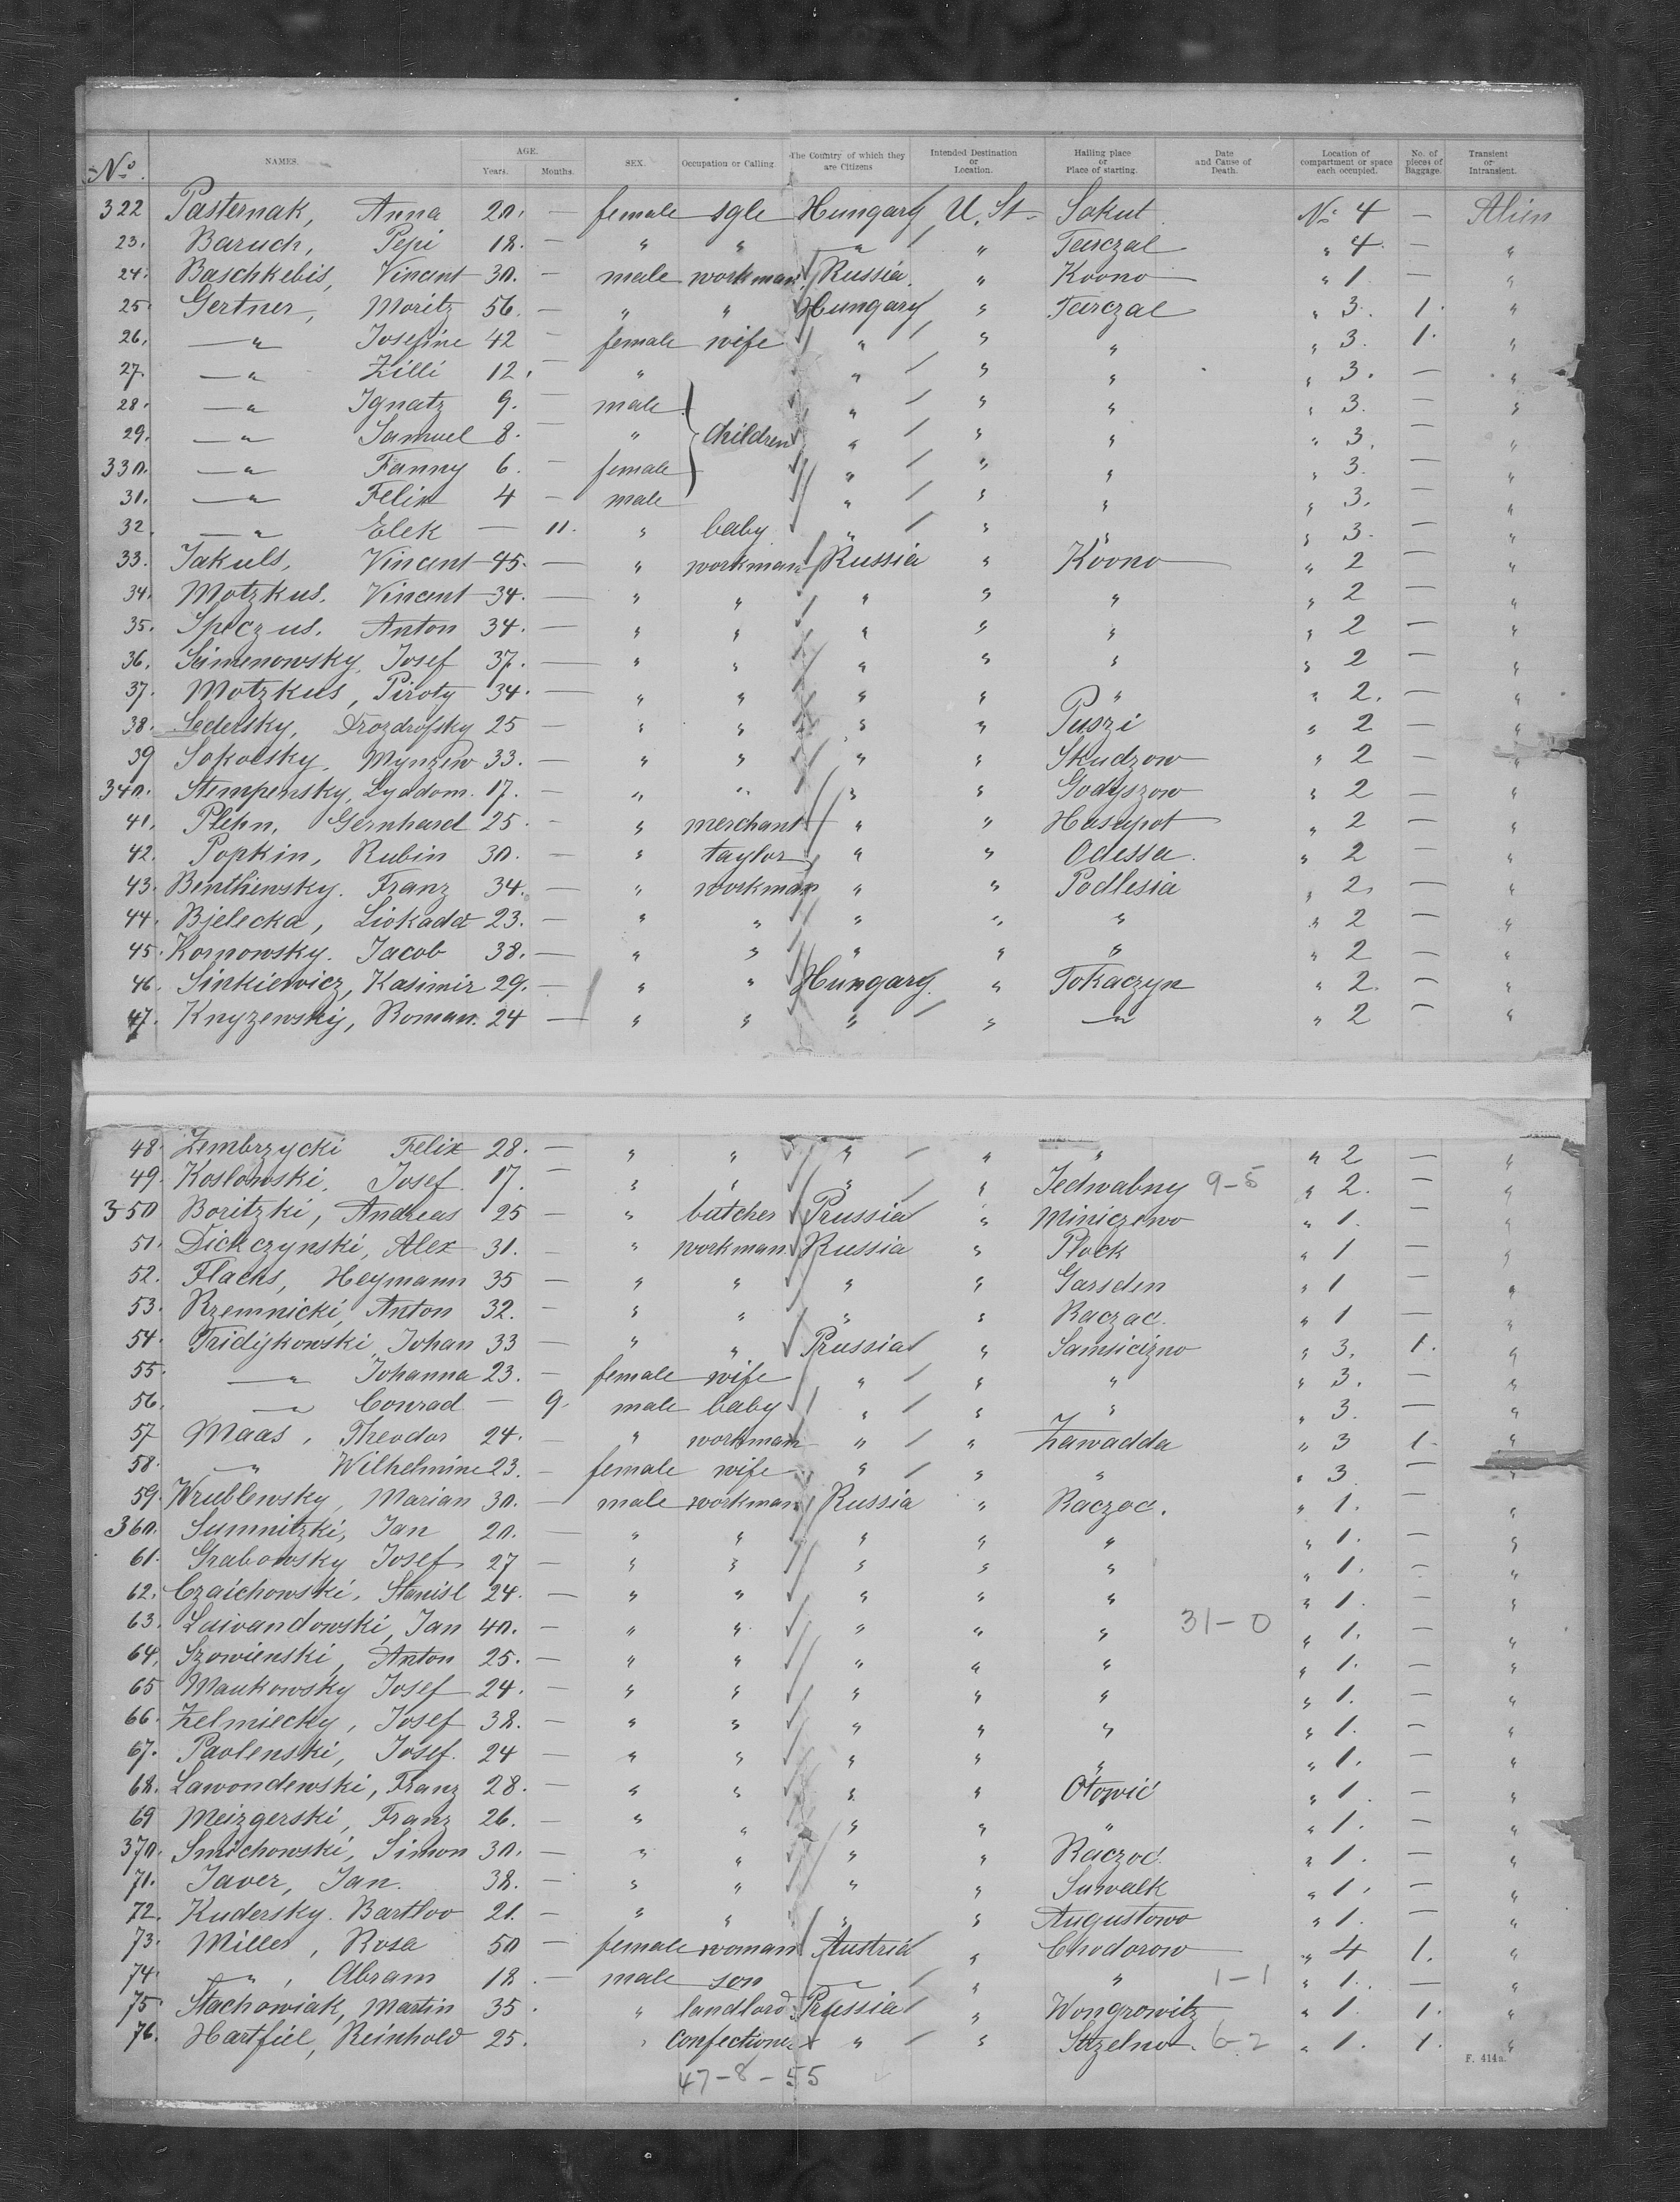 No. NAMES. AGE. Years. Months. SEX. Occupation or Calling The Country of which they are Citizens Intended Destination or Location. Hailing place or Place of starting. Date and Cause of Death. Location of compartment or space each occupied. No. of pieces of Baggage. Transient or Intransient.
322 Pasternak, Anna 20. — female sgle Hungary U. St. Sokut No. 4 — Alien
23. Baruch, Pepi 18. — " " " " Tarczal " 4. — "
24. Baschkebis, Vincent 30. — male workman Russia " Kovno " 1 — "
25. Gertner, Moritz 56. — " " Hungary " Tarczal " 3. 1. "
26. " Josefine 42 female wife " " " " 3. 1. "
27. " Zilli 12. — " " " " " 3. — "
28. " Ignatz 9. — male " " " " 3. — "
29. " Samuel 8. — " Children " " " " 3. — "
330. " Fanny 6. — female " " " " 3. — "
31. " Felix 4 — male " " " " 3. — "
32. " Elek — 11. " baby " " " " 3. — "
33. Jakuls, Vincent 45. — " workman Russia " Kovno " 2 — "
34. Motzkus, Vincent 34. — " " " " " " 2 — "
35. Speczus, Anton 34. — " " " " " " 2 — "
36. Simenowsky, Josef 37. — " " " " " " 2 — "
37. Motzkus, Piroty 34. — " " " " " " 2. — "
38. Ledersky, Drozdrofsky 25 — " " " " Puszi " 2 — "
39 Sokolsky, Mynzew 33. — " " " " Skudzow " 2 — "
340. Stempensky, Lyadom. 17. — " " " " Godyszow " 2 — "
41. Plehn, Gernhard 25 — " merchant " " Hasenpot " 2 — "
42. Popkin, Rubin 30. — " taylor " " Odessa. " 2 — "
43. Benthiewsky. Franz 34. — " workman " " Podlesia " 2. — "
44. Bjelecka, Liokada 23. — " " " " " " 2 — "
45. Kornowsky. Jacob 38. — " " " " " " 2 — "
46. Sinkiewicz, Kasimir 29. — " " Hungary. " Tokaczyn " 2. — "
47. Knyzewskij, Roman. 24 — " " " " " " 2 — "
48. Zembrzycki Felix 28. — " " " " " " 2 — "
49. Koslowski, Josef. 17. — " " " " Jedwabny 9-5 " 2. — "
350 Boritzki, Andreas 25 — " butcher Prussia " Miniczewo " 1. — "
51. Dickczynski, Alex 31. — " workman Russia " Plock " 1 — "
52. Flachs, Heymann 35 — " " " " Garsden " 1 — "
53. Rzemnicki, Anton 32. — " " " " Raczac. " 1 — "
54. Fridijkowski, Johan 33 — " " Prussia " Samsicizno " 3. 1. "
55. " Johanna 23. — female wife " " " " 3. — "
56. " Conrad — 9. male baby " " " " 3. — "
57 Maas, Theodor 24. — " workman " " Zawadda " 3 1. "
58. " Wilhelmine 23. — female wife " " " " 3 — "
59. Wrublewsky, Marian 30. — male workman Russia " Raczoc. " 1. — "
360. Sumnitzki, Jan 20. — " " " " " " 1. — "
61. Grabowsky Josef 27 — " " " " " " 1. — "
62. Czaichowski, Stanisl 24. — " " " " " " 1. — "
63. Laivandowski, Jan 40. — " " " " " 31-0 " 1. — "
64. Szowienski, Anton 25. — " " " " " " 1. — "
65 Maukowsky Josef 24. — " " " " " " 1. — "
66. Zelmiecky, Josef 38. — " " " " " " 1. — "
67. Pavlenski, Josef. 24 — " " " " " " 1. — "
68. Lawondewski, Franz 28. — " " " " Otowic " 1. — "
69 Meizgerski, Franz 26. — " " " " " " 1. — "
370. Smichowski, Simon 30. — " " " " Raczoc. " 1. — "
71. Javer, Jan. 38. — " " " " Suwalk " 1. — "
72. Kudersky. Bartlov 21. — " " " " Augustowo " 1. — "
73. Miller, Rosa 50 — female woman Austria " Chodorow " 4 1. "
74. ", Abram 18. — male son " " " 1-1 " 1. — "
75. Stachowiak, Martin 35. " landlord Prussia " Wongrowitz " 1. 1. "
76. Hartfiel, Reinhold 25. " Confectioner " " Strzelno. 6-2 " 1. 1. "
47-8-55
F. 414a.